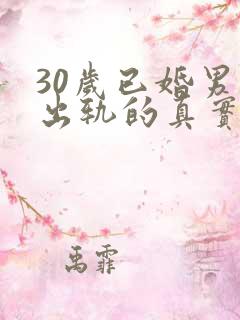 30歲已婚男
出轨的真實
禹霏